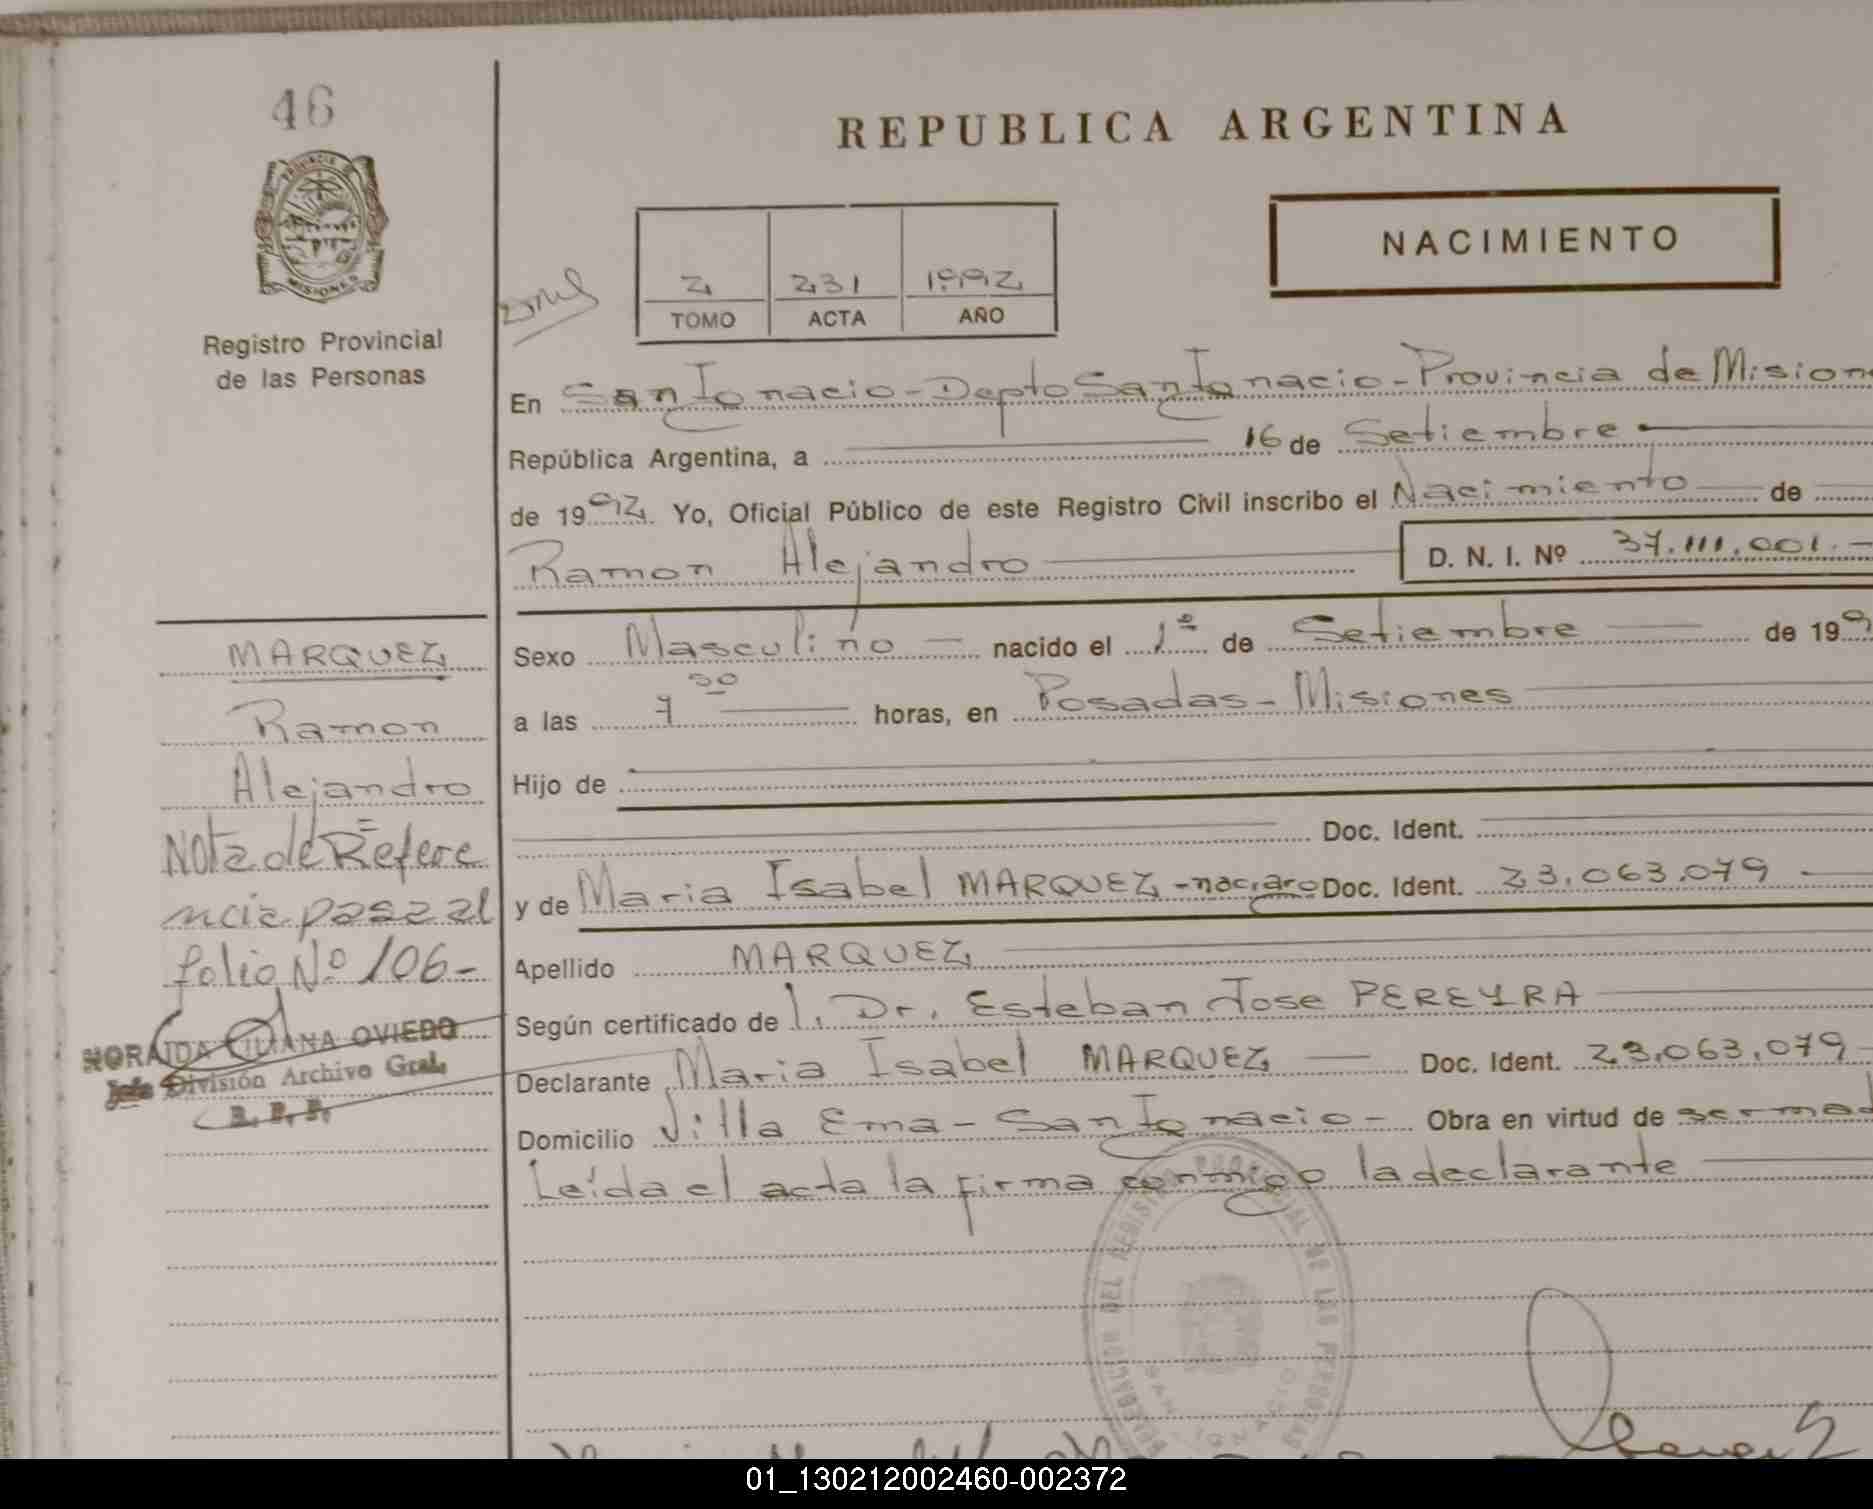 46
REPUBLICA ARGENTINA
PROVINCIA DE
MISIONES
Registro Provincial
de las Personas
2 231 1992
TOMO ACTA AÑO
NACIMIENTO
En San Ignacio - Depto San Ignacio - Provincia de Mision
República Argentina, a 16 de Setiembre
de 1992. Yo, Oficial Público de este Registro Civil inscribo el Nacimiento de
Ramon Alejandro D. N. I. Nº 37.111.001.-
Sexo Masculino nacido el 1º de Setiembre de 199
a las 7 30 horas, en Posadas - Misiones
Hijo de
Doc. Ident.
y de Maria Isabel MARQUEZ - Doc. Ident. 23.063.079
Apellido MARQUEZ
Según certificado de l. Dr. Esteban Jose PEREYRA
Declarante Maria Isabel MARQUEZ Doc. Ident. 23.063.079
Domicilio Villa Ema - San Ignacio - Obra en virtud de ser mad
Leída el acta la firma conmigo la declarante
MARQUEZ
Ramon
Alejandro
=
Nota de Refere
ncia pasa al
folio Nº 106-
NORAIDA LILIANA OVIEDO
Jefe División Archivo Gral.
R. P. P.
01_130212002460-002372